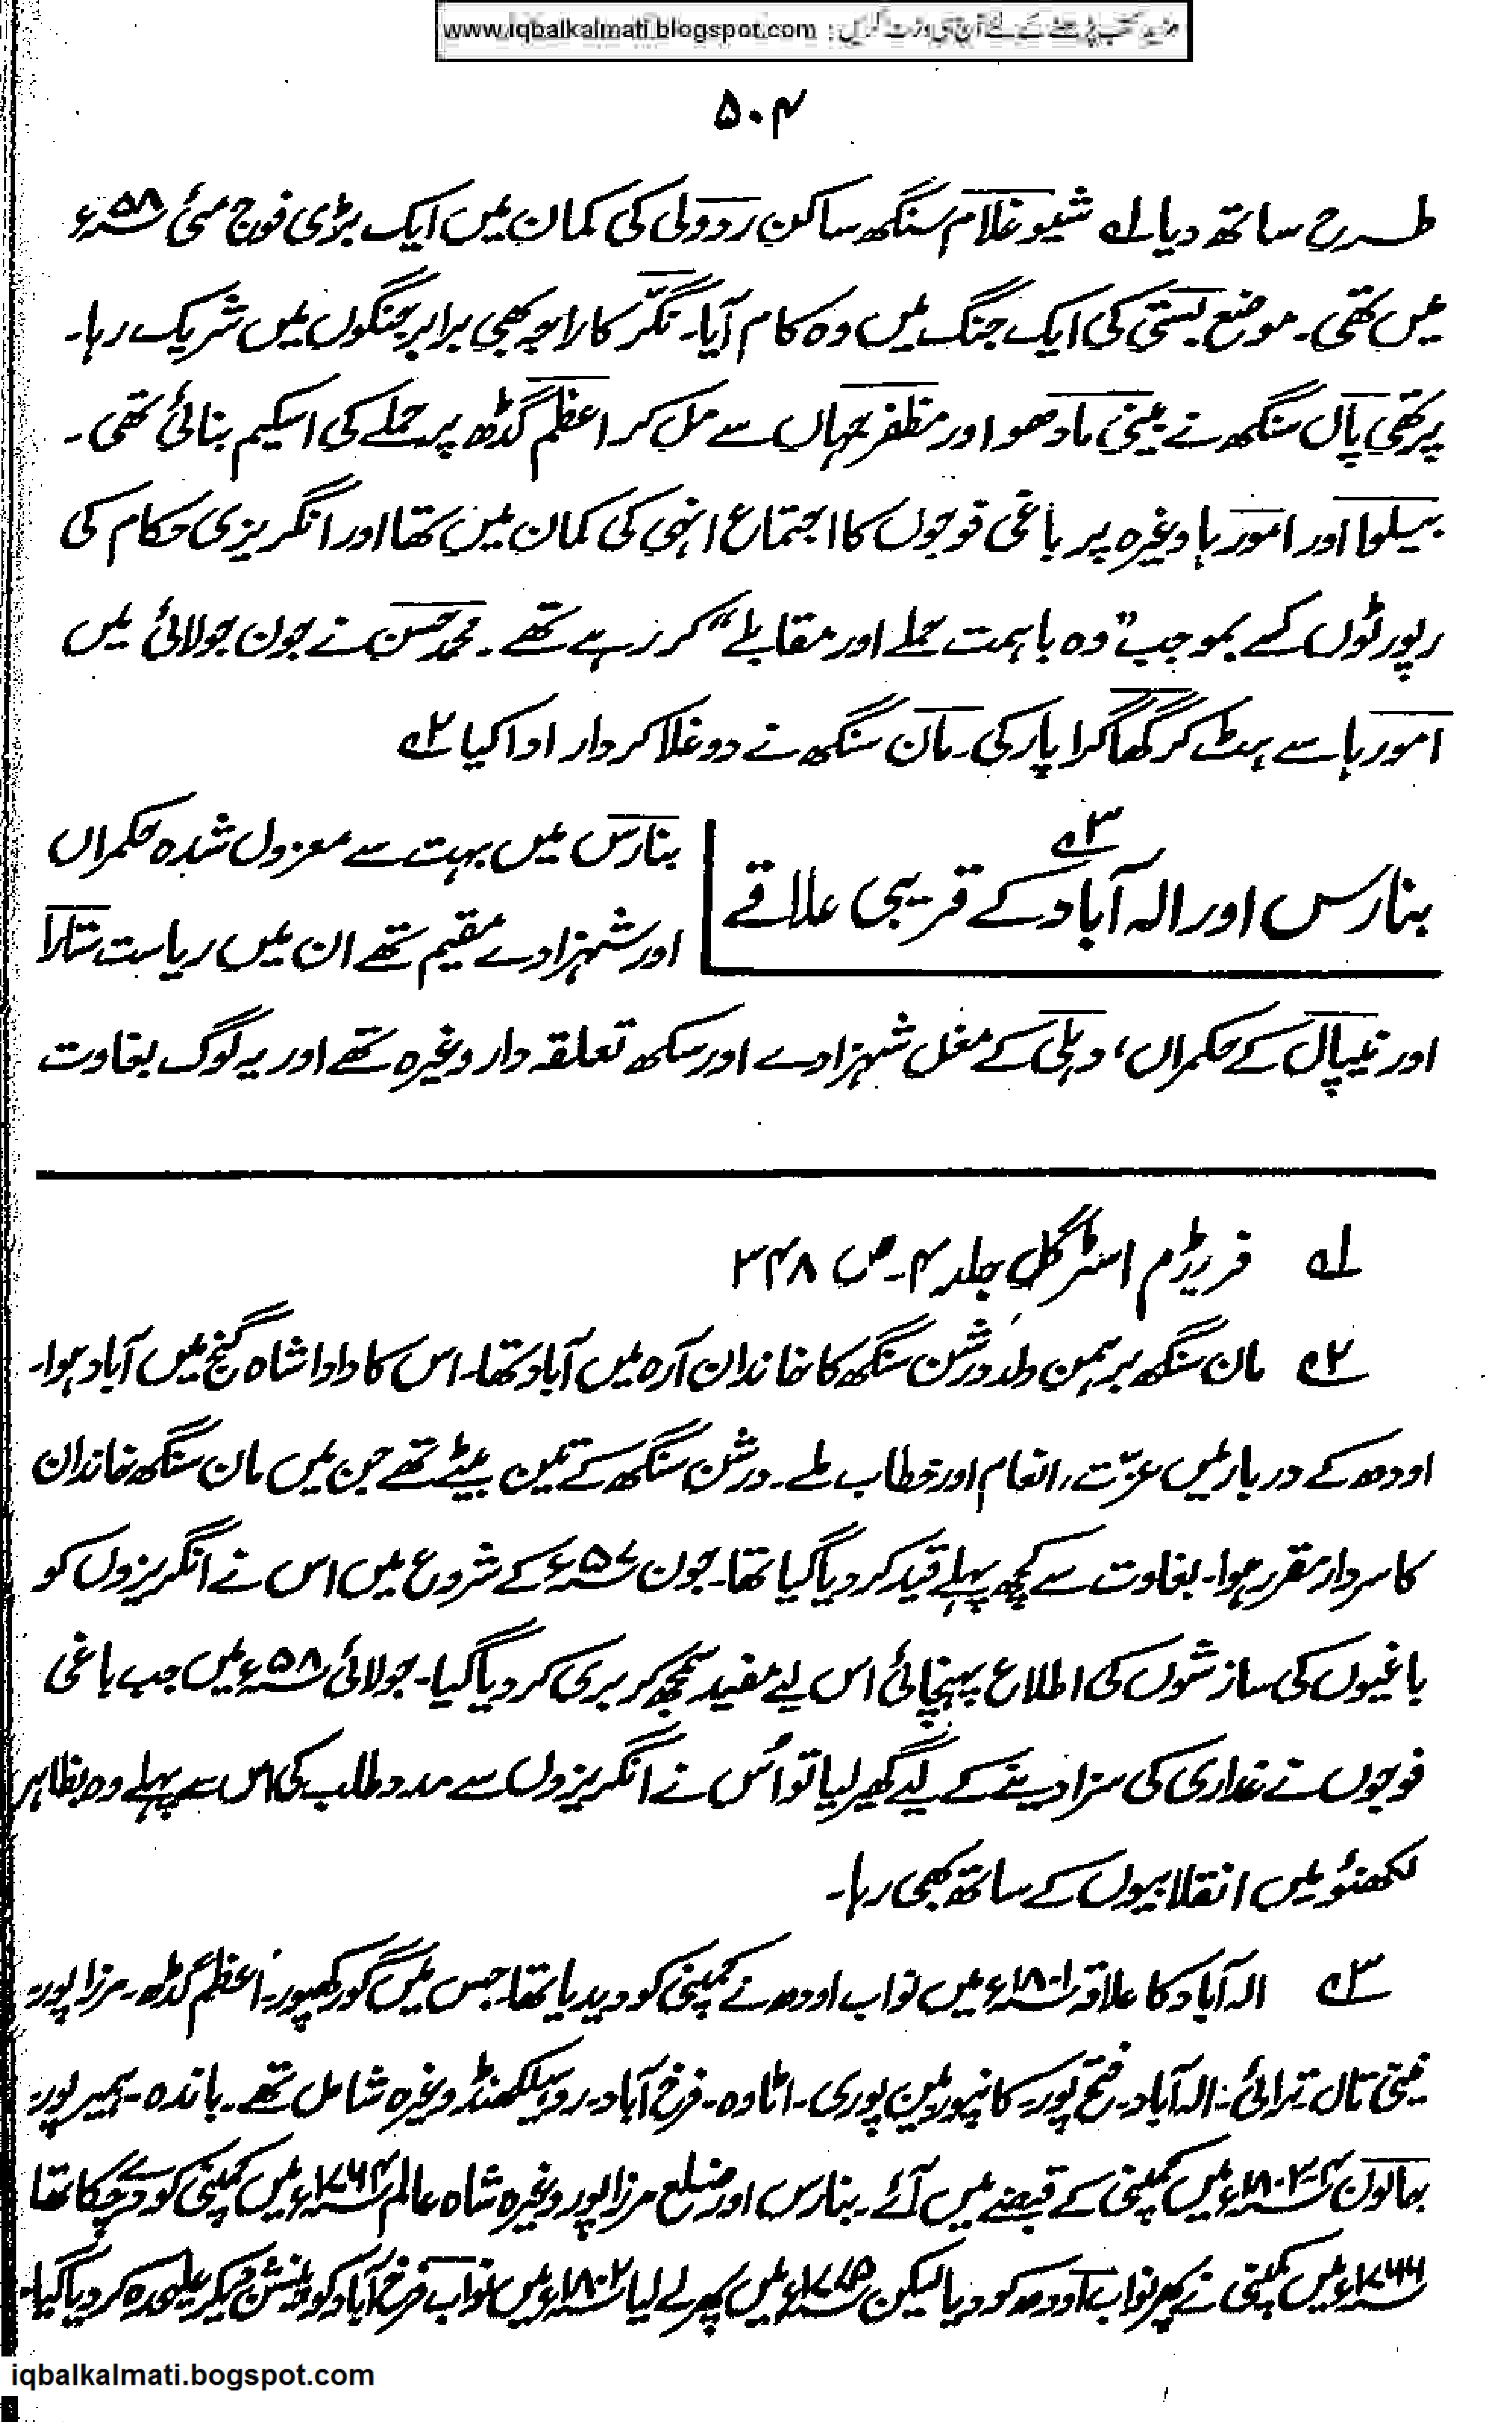 مزید کتب پڑھنے کے لئے آج ہی وزٹ کریں : www.iqbalkalmati.blogspot.com
۵۰۴
طرح ساتھ دیا ۱ے شیو غلام سنگھ ساکن ردولی کی کمان میں ایک بڑی فوج مئی ۵۸ء
میں تھی۔ موضع بستی کی ایک جنگ میں وہ کام آیا۔ نگر کا راجہ بھی برابر جنگوں میں شریک رہا۔
پرتھی پال سنگھ نے بینی مادھو اور مظفر جہاں سے مل کر اعظم گڈھ پر حملے کی اسکیم بنائی تھی۔
بیلوا اور امورہا وغیرہ پر باغی فوجوں کا اجتماع انہی کی کمان میں تھا اور انگریزی حکام کی
رپورٹوں کے بموجب ”وہ باہمت حملے اور مقابلے“ کر رہے تھے۔ محمد حسن نے جون جولائی میں
امورہا سے ہٹ کر گھاگرا پار کی۔ مان سنگھ نے دوغلا کردار ادا کیا ۲ے
بنارس اور الہ آباد کے قریبی علاقے ۳ے
بنارس میں بہت سے معزول شدہ حکمراں
اور شہزادے مقیم تھے ان میں ریاست ستارا
اور نیپال کے حکمراں، دہلی کے مغل شہزادے اور سکھ تعلقہ دار وغیرہ تھے اور یہ لوگ بغاوت
۱ے فریڈم اسٹرگل جلد ۴۔ ص ۳۴۸
۲ے مان سنگھ برہمن ولد درشن سنگھ کا خاندان آرہ میں آباد تھا۔ اس کا دادا شاہ گنج میں آباد ہوا۔
اودھ کے دربار میں عزّت، انعام اور خطاب ملے۔ درشن سنگھ کے تین بیٹے تھے جن میں مان سنگھ خاندان
کا سردار مقرر ہوا۔ بغاوت سے کچھ پہلے قید کر دیا گیا تھا۔ جون ۵۷ء کے شروع میں اس نے انگریزوں کو
باغیوں کی سازشوں کی اطلاع پہنچائی اس لیے مفید سمجھ کر بری کر دیا گیا۔ جولائی ۵۸ء میں جب باغی
فوجوں نے غداری کی سزا دینے کے لیے گھیر لیا تو اُس نے انگریزوں سے مدد طلب کی اس سے پہلے وہ بظاہر
لکھنؤ میں انقلابیوں کے ساتھ بھی رہا۔
۳ے الہ آباد کا علاقہ ۱۸۰۱ء میں نواب اودھ نے کمپنی کو دیدیا تھا جس میں گورکھپور۔ اعظم گڈھ۔ مرزا پور۔
نینی تال ترائی۔ الہ آباد۔ فتح پور۔ کانپور۔ مین پوری۔ اٹاوہ۔ فرخ آباد۔ روہیلکھنڈ وغیرہ شامل تھے۔ باندہ۔ ہمیر پور۔
جالون ۴-۱۸۰۳ء میں کمپنی کے قبضے میں آئے۔ بنارس اور ضلع مرزا پور وغیرہ شاہ عالم ۱۷۶۴ء میں کمپنی کو دے چکا تھا
۱۷۶۶ء میں کمپنی نے پھر نواب اودھ کو دیا لیکن ۱۷۷۵ء میں پھر لے لیا ۱۸۰۲ء میں نواب فرخ آباد کو پنشن دیکر علیحدہ کر دیا گیا۔
iqbalkalmati.bogspot.com